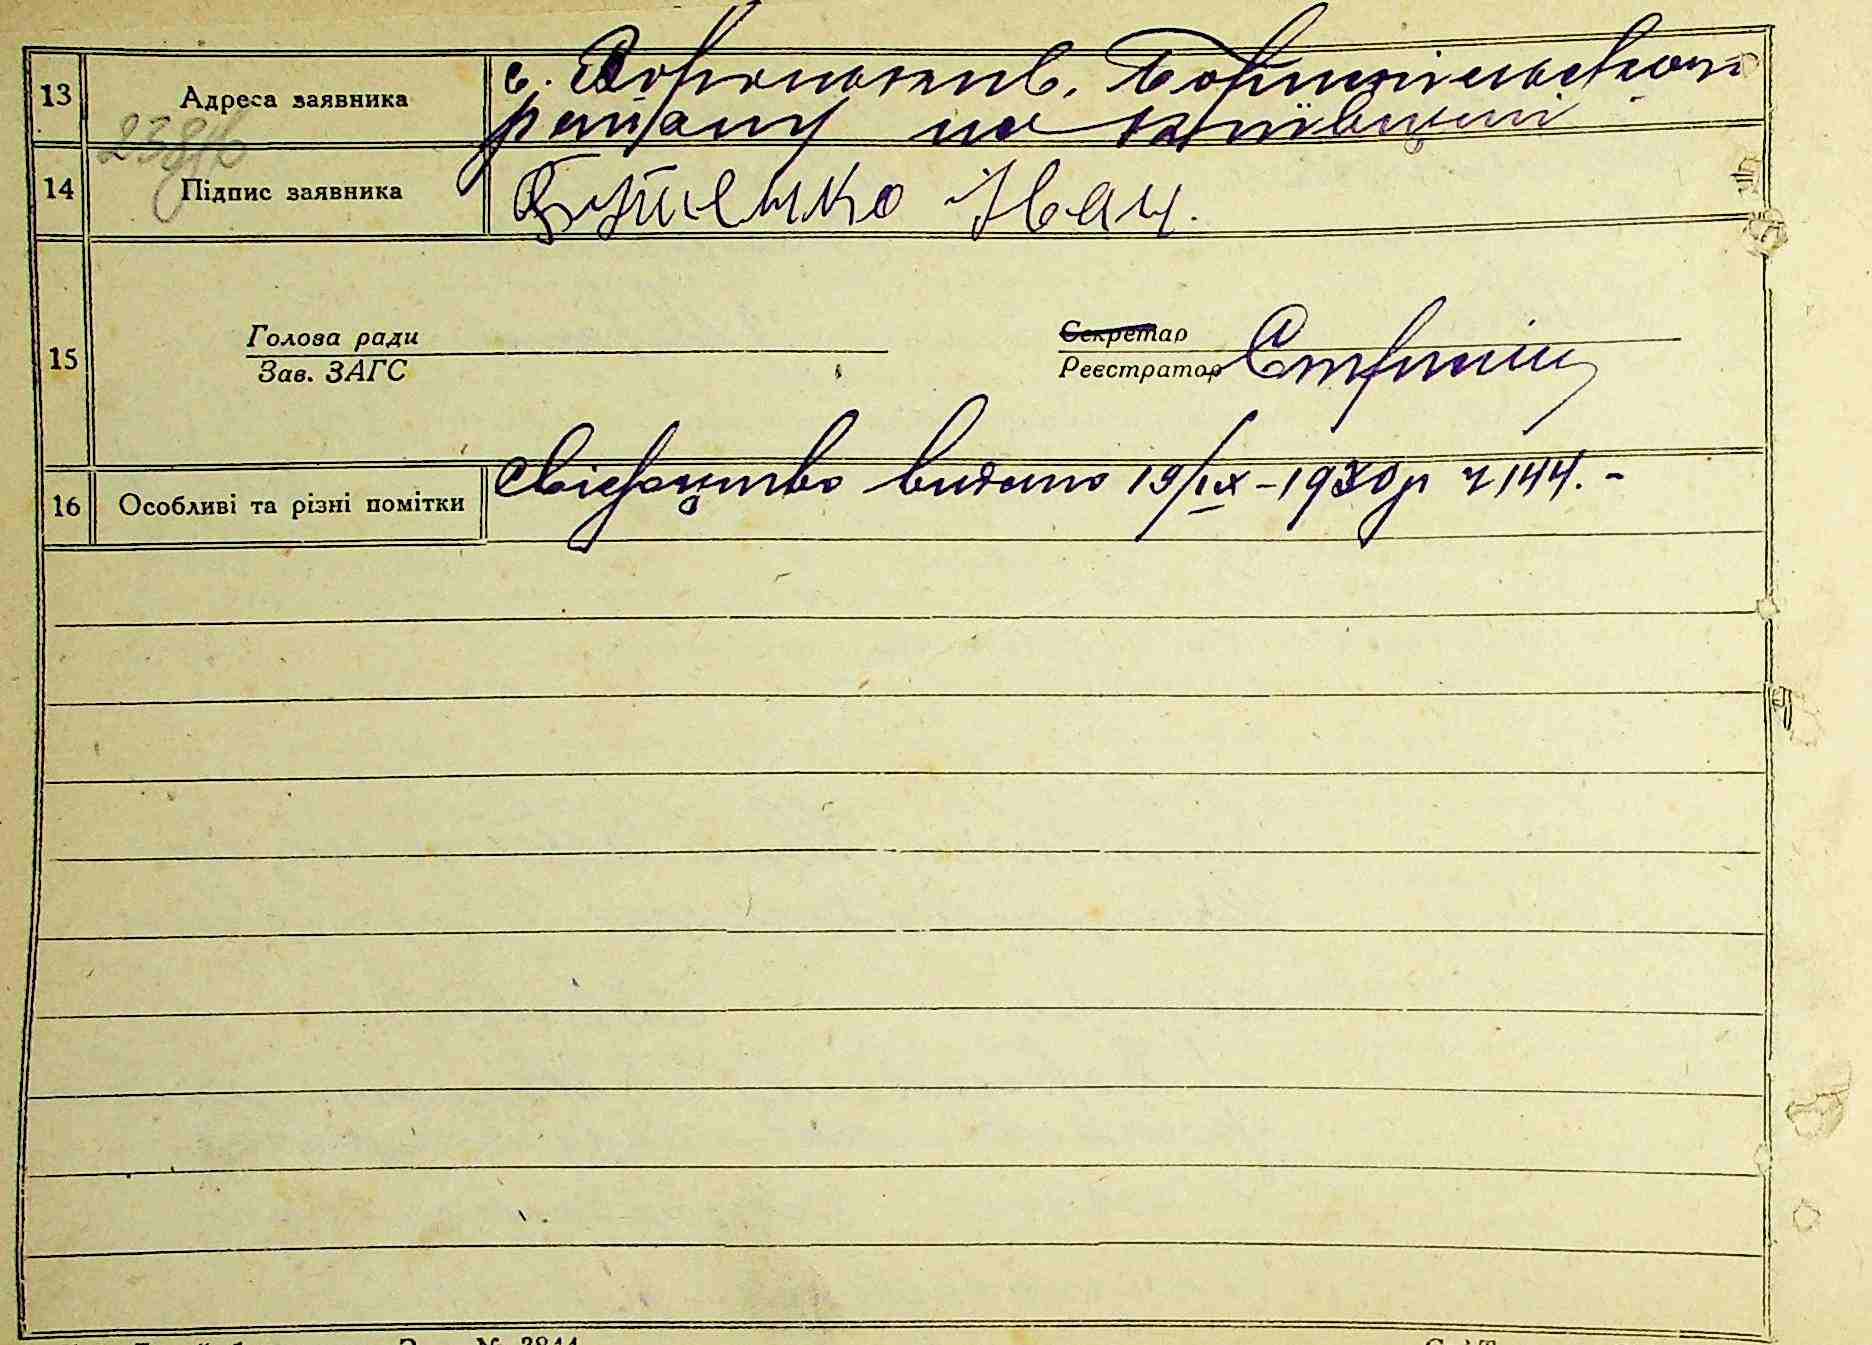 13 Адреса заявника с. Вороньків, Бориспільського
району на Київщині
14 Підпис заявника Бутченко Іван.
15 Голова ради
Зав. ЗАГС
Секретар
Реєстратор
16 Особливі та різні помітки Свідоцтво видано 19/IX-1930р ч 144.-